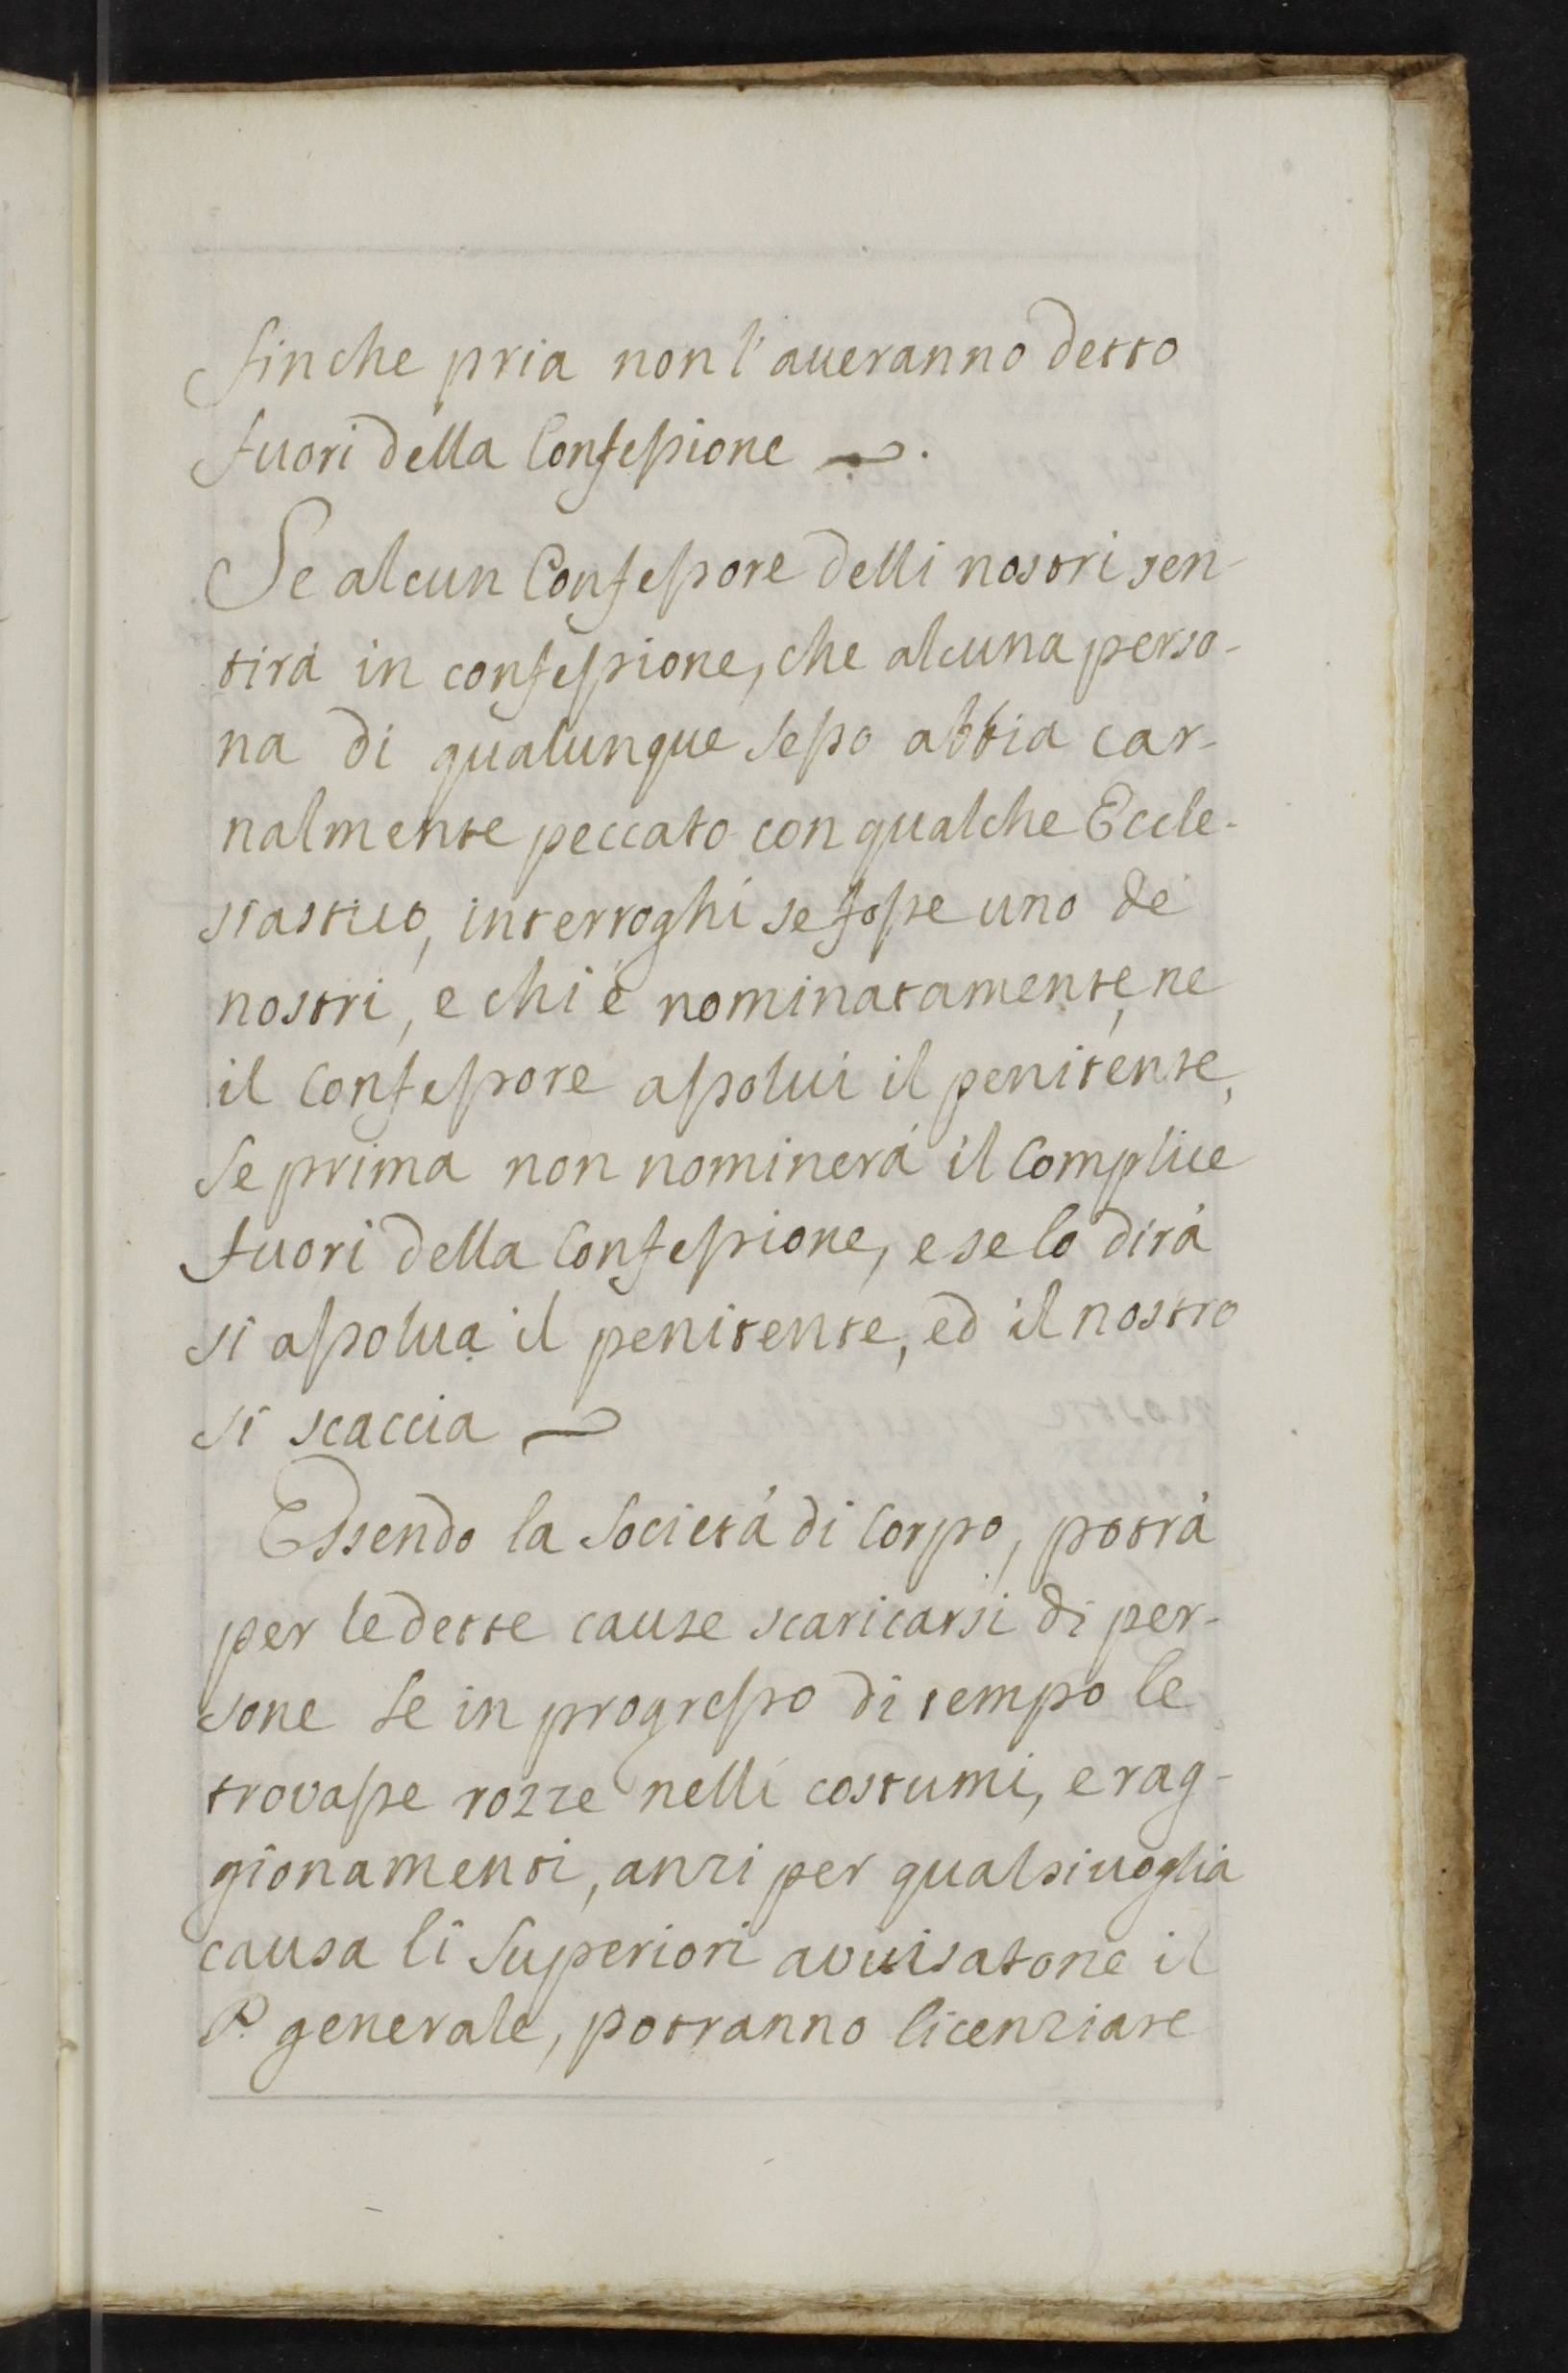 finche pria non l'aueranno detto
fuori della Confessione
Se alcun Confessore delli nostri sen-
tirá in confessione, che alcuna perso-
na di qualunque sesso abbia car-
nalmente peccato con qualche Eccle-
siastico, interroghi se fosse uno de
nostri, e chi é nominatamente, ne
il Confessore assolui il penitente,
se prima non nominerá il Complice
fuori della Confessione, e se lo dirá
si assolua il penitente, ed il nostro
si scaccia
Essendo la Societá di Corpo, potrá
per le dette cause scaricarsi di per-
sone se in progresso di tempo le
trovasse rozze nelli costumi, e rag-
gionamenti, anzi per qualsiuoglia
causa li Superiori avuisatone il
P. generale, potranno licenziare